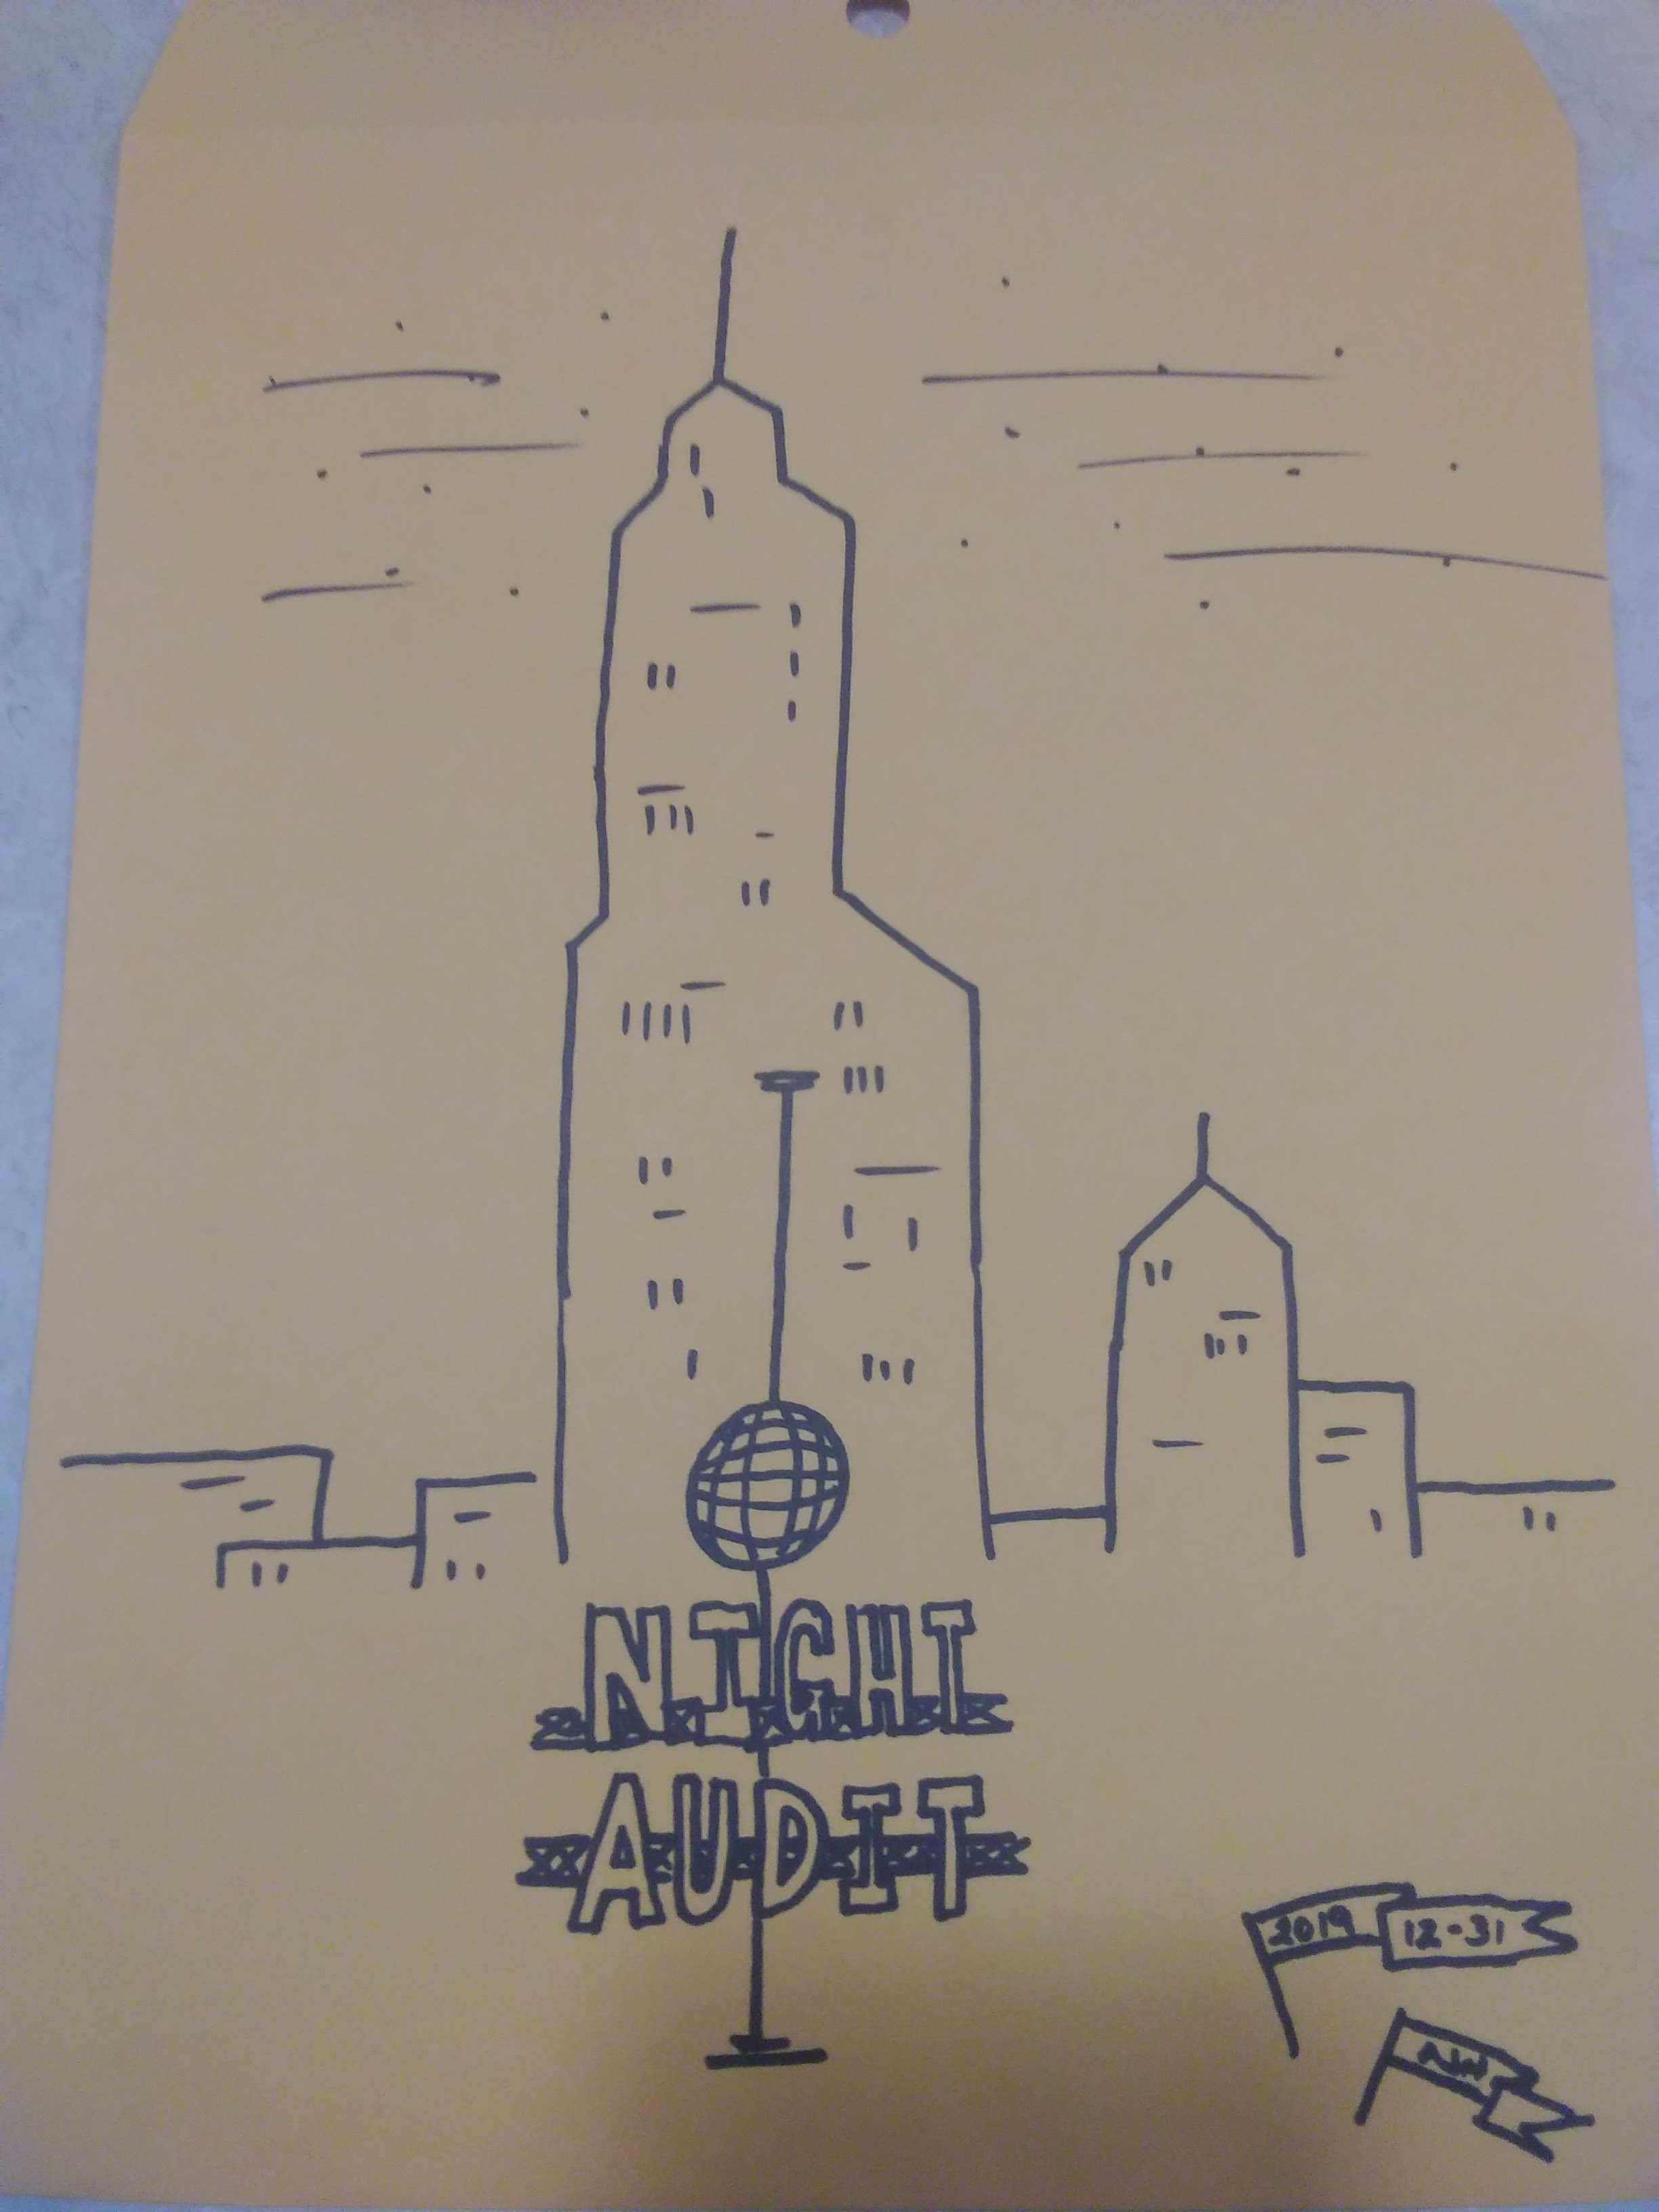 NIGHT
AUDIT
2019 12-31
NW